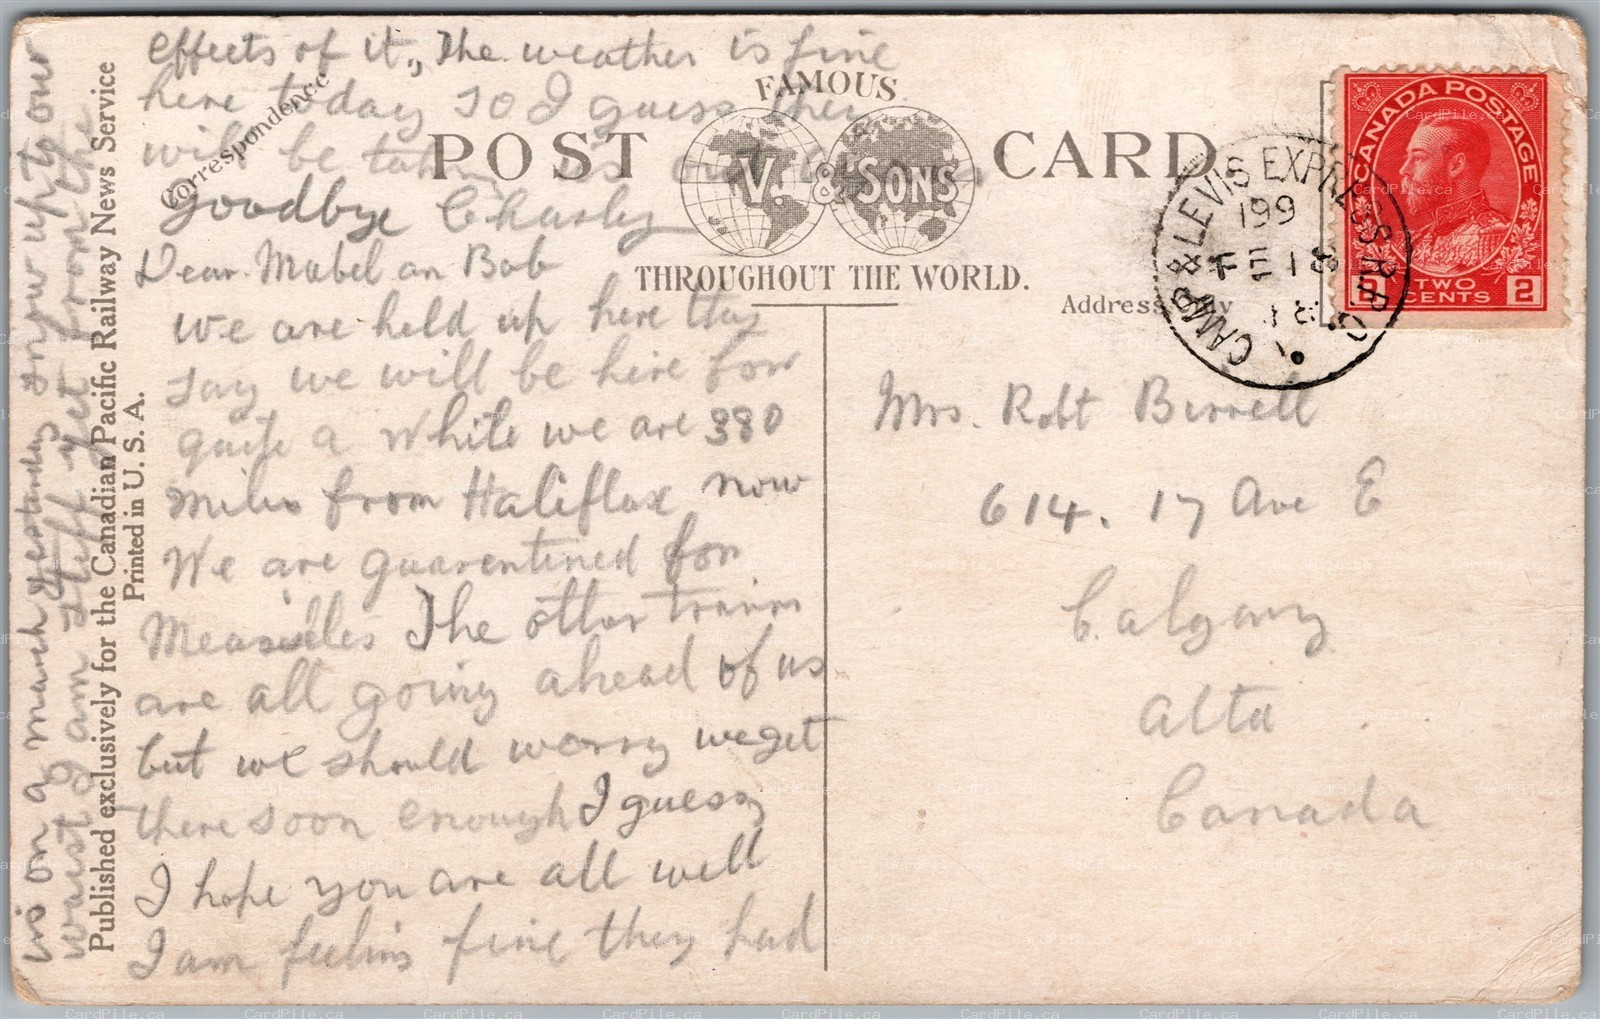 effects of it,, The weather is fine
here today so I guess they
will be taking us out
Goodbye Charley
Correspondence
FAMOUS
POST CARD
V. & SONS
THROUGHOUT THE WORLD.
Dear Mabel an Bob
we are held up here thay
say we will be hire for
quite a while we are 380
miles from Haliflax now
We are quarentined for
Measelles The other trains
are all going ahead of us
but we should worry we get
there soon enough I guess
I hope you are all well
I am feelins fine they had
us on a march yesterday snow up to our
waist I am stiff yet from the
Published exclusively for the Canadian Pacific Railway News Service
Printed in U. S. A.
CANADA POSTAGE
2 TWO CENTS 2
CAMP. & LEVIS EXPRESS R.P.O.
199
FE 18
Address
Mrs. Robt Birrell
614. 17 Ave E
Calgary
Alta
Canada
CardPile.ca